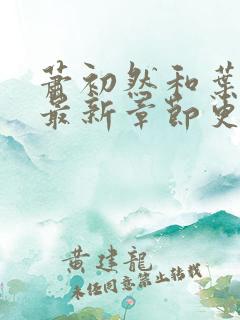 萧初然和葉
最新章節更
黄建龍
未经同意禁止转载